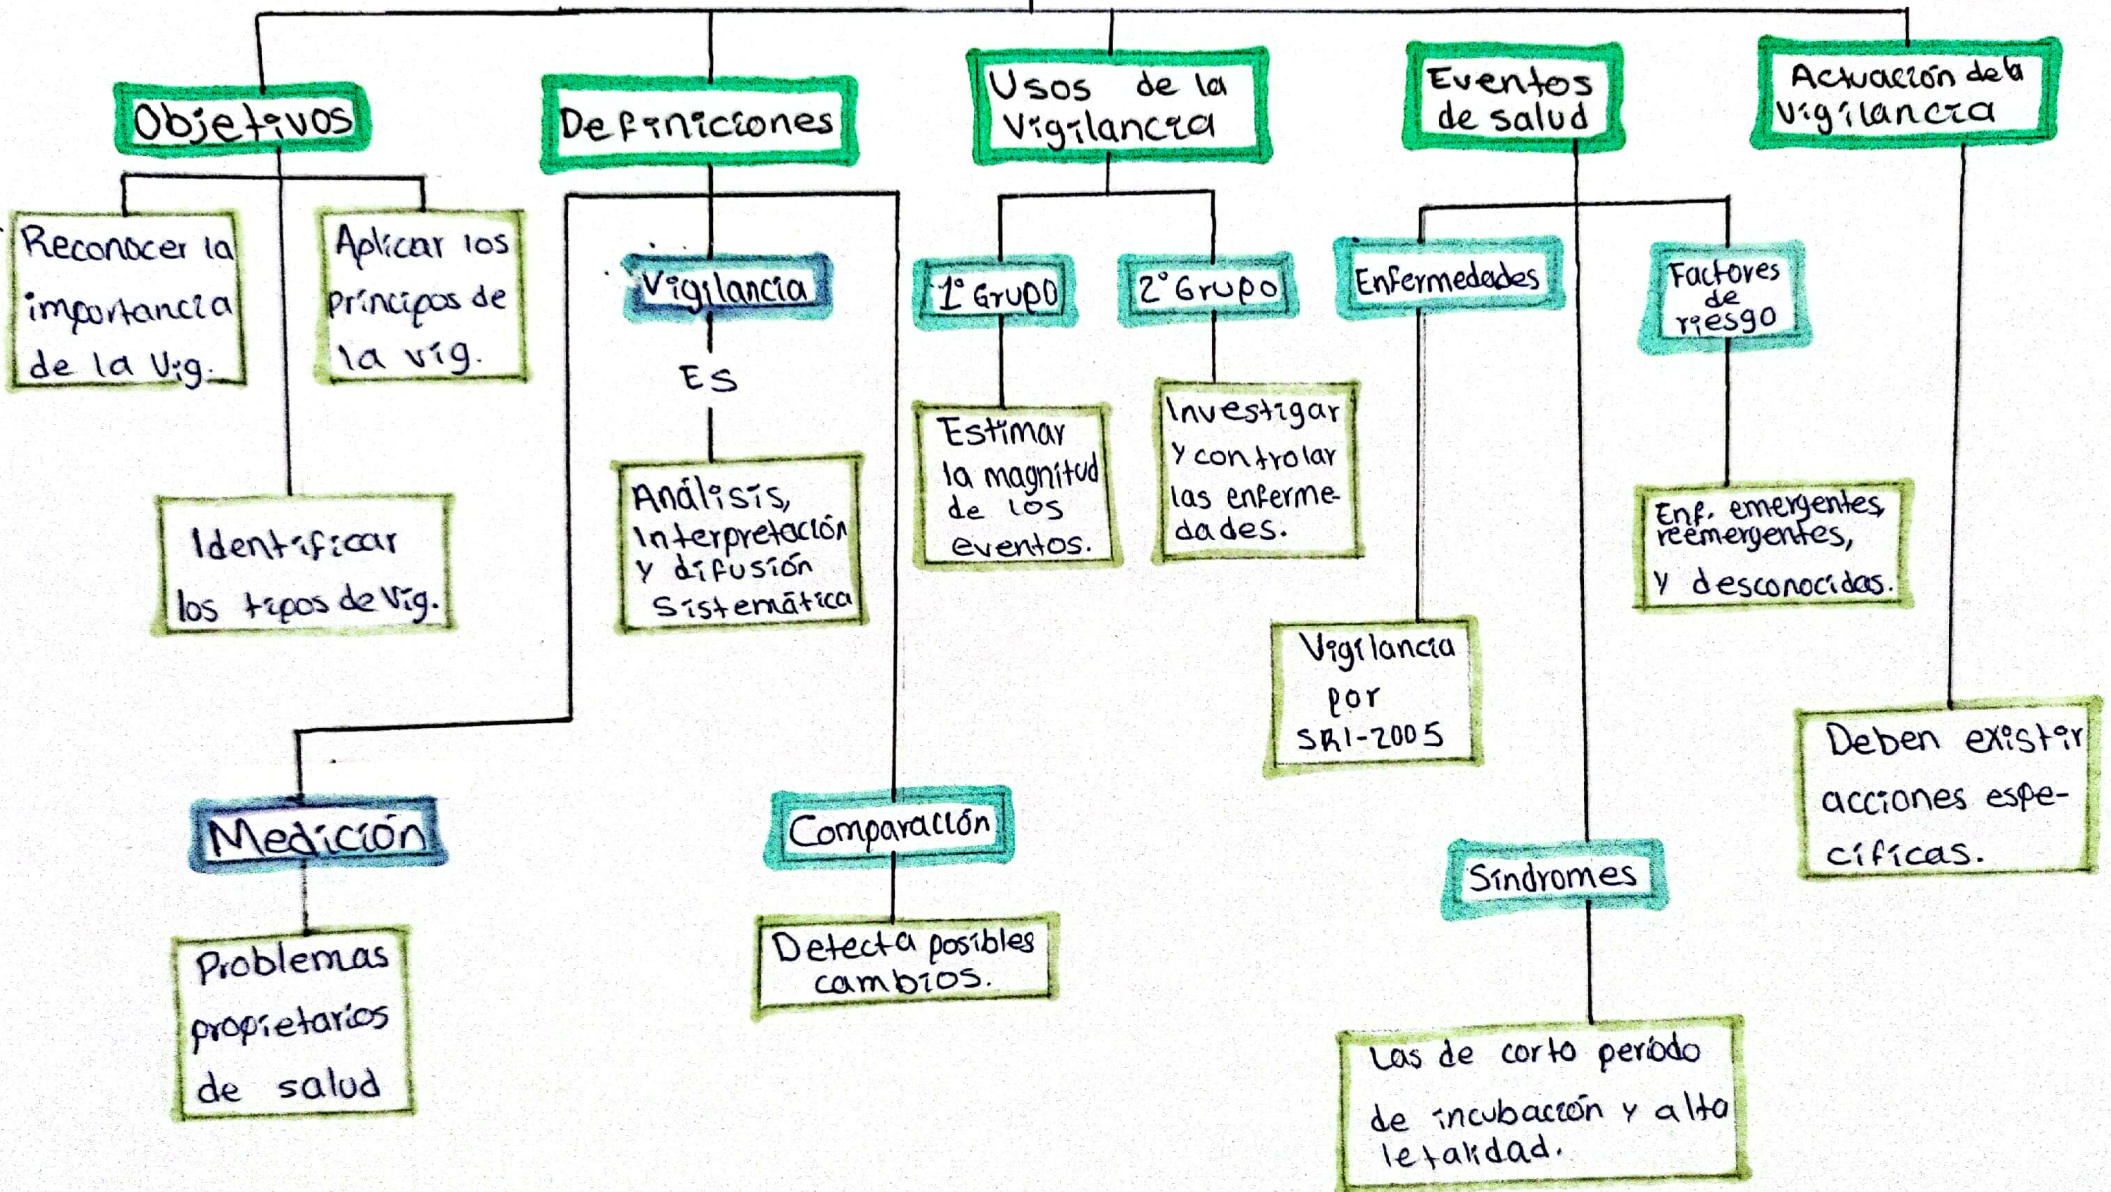 Objetivos
Reconocer la
importancia
de la Vig.
Aplicar los
principos de
la vig.
Identificar
los tipos de Vig.
Definiciones
Vigilancia
ES
Análisis,
Interpretación
y difusión
Sistemática
Medición
Problemas
propietarios
de salud
Comparación
Detecta posibles
cambios.
Usos de la
Vigilancia
1° Grupo
Estimar
la magnitud
de los
eventos.
2° Grupo
Investigar
y controlar
las enferme-
dades.
Eventos
de salud
Enfermedades
Vigilancia
por
SRI-2005
Síndromes
Las de corto período
de incubación y alta
letalidad.
Factores
de
riesgo
Enf. emergentes,
reemergentes,
y desconocidas.
Actuación de la
Vigilancia
Deben existir
acciones espe-
cíficas.